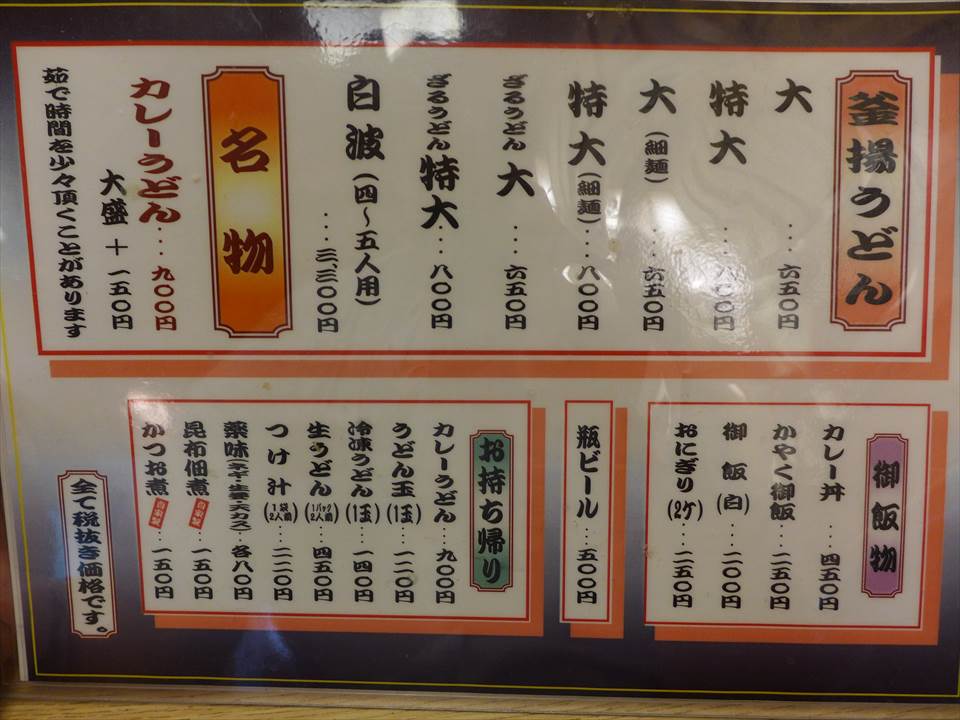 釜揚うどん
大……六五〇円
特大……八〇〇円
大(細麺)……六五〇円
特大(細麺)……八〇〇円
ざるうどん 大……六五〇円
ざるうどん 特大……八〇〇円
白波(四〜五人用)
……三、三〇〇円
名物
カレーうどん……九〇〇円
大盛+一五〇円
茹で時間を少々頂くことがあります
御飯物
カレー丼……四五〇円
かやく御飯……二五〇円
御飯(白)……二〇〇円
おにぎり(2ケ)……二五〇円
瓶ビール……五〇〇円
お持ち帰り
カレーうどん……九〇〇円
うどん玉(1玉)……一二〇円
冷凍うどん(1玉)……一四〇円
生うどん(1パック2人前)……四五〇円
つけ汁(1袋2人前)……二二〇円
薬味(ネギ・生姜・天カス)…各八〇円
昆布佃煮 自家製……一五〇円
かつお煮 自家製……一五〇円
全て税抜き価格です。